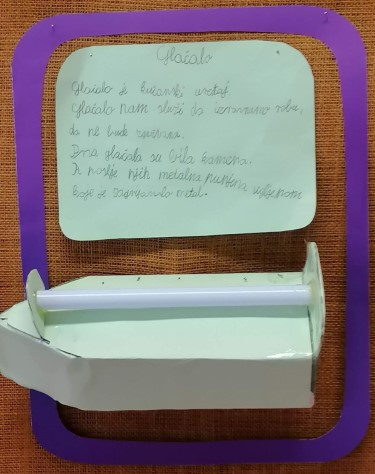 Glačalo
Glačalo je kućanski uređaj.
Glačalo nam služi da izravnamo robu,
da ne bude zgužvana.
Prva glačala su bila kamena.
A poslije njih metalna punjena ugljenom
koji je zagrijavao metal.